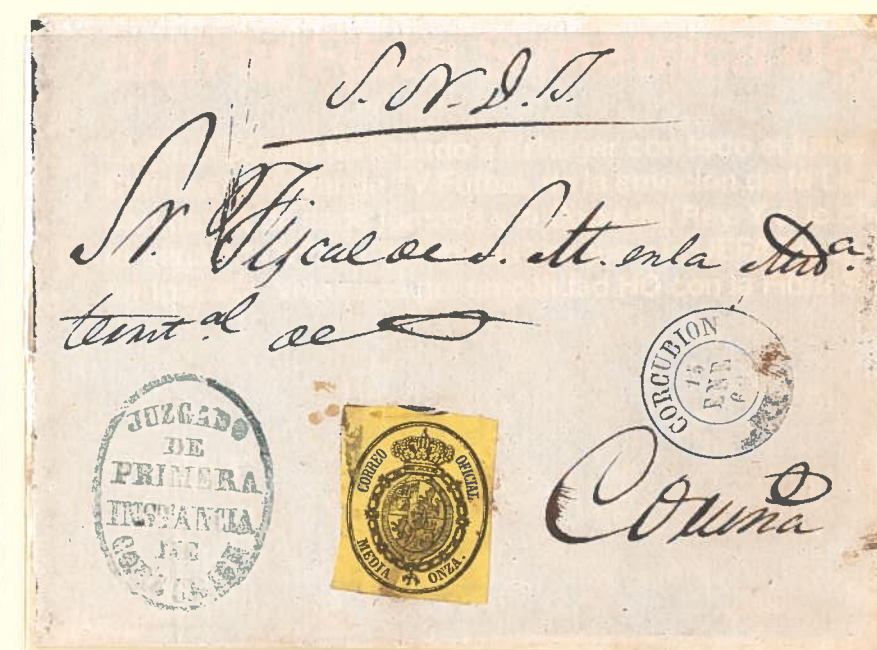 S. N. D. S.
Sr. Fiscal de S. M. en la Auda.
territal de
CORCUBION
15
ENE
JUZGADO
DE
PRIMERA
INSTANCIA
DE
CORCUBION
CORREO OFICIAL
MEDIA ONZA.
Coruña